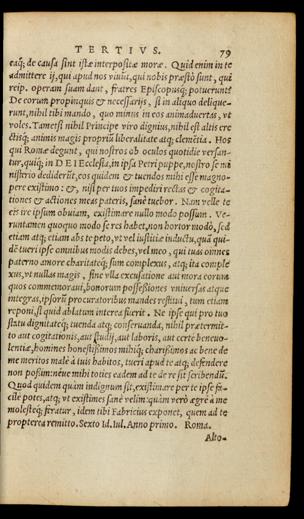 TERTIVS. 79
eaq́; de causa sint istæ interpositæ moræ. Quid enim in te
admittere ij, qui apud nos viuūt, qui nobis præstò sunt, qui
reip. operam suam dant, fratres Episcopusq́; potuerunt?
De eorum propinquis & necessarijs, si in aliquo delique-
runt, nihil tibi mando, quo minus in eos animaduertas, vt
voles. Tametsi nihil Principe viro dignius, nihil est altis ere
ctisq́; animis magis propriū liberalitate atq; clemētia. Hos
qui Romæ degunt, qui nostros ob oculos quotidie versan-
tur, quiq́; in DEI Ecclesia, in ipsa Petri puppe, nostro se mi
nisterio dediderūt, eos quidem & tuendos mihi esse magno-
pere existimo: &, nisi per tuos impediri rectas & cogita-
tiones & actiones meas pateris, sanè tuebor. Nam velle te
eis ire ipsum obuiam, existimare nullo modo possum. Ve-
runtamen quoquo modo se res habet, non hortor modò, sed
etiam atq; etiam abs te peto, vt vel iustitiæ inductu, quā qui-
dē tueri ipse omnibus modis debes, vel meo, qui tuas omnes
paterno amore charitateq́; sum complexus, atq; ita comple
xus, vt nullas magis, sine vlla excusatione aut mora eorum
quos commemoraui, bonorum possessiones vniuersas atque
integras, ipsorū procuratoribus mandes restitui, tum etiam
reponi, si quid ablatum interea fuerit. Ne ipse qui pro tuo
statu dignitateq́; tuenda atq; conseruanda, nihil prætermit-
to aut cogitationis, aut studij, aut laboris, aut certe beneuo-
lentiæ, homines honestissimos mihiq́; charissimos ac bene de
me meritos malè à tuis habitos, tueri apud te atq; defendere
non possim: néue mihi toties eadem ad te de re sit scribendū.
Quod quidem quàm indignum sit, existimare per te ipse fa
cile potes, atq; vt existimes sanè velim: quàm verò ægrè à me
molesteq́; feratur, idem tibi Fabricius exponet, quem ad te
propterea remitto. Sexto Id. Iul. Anno primo. Roma.
Alto-